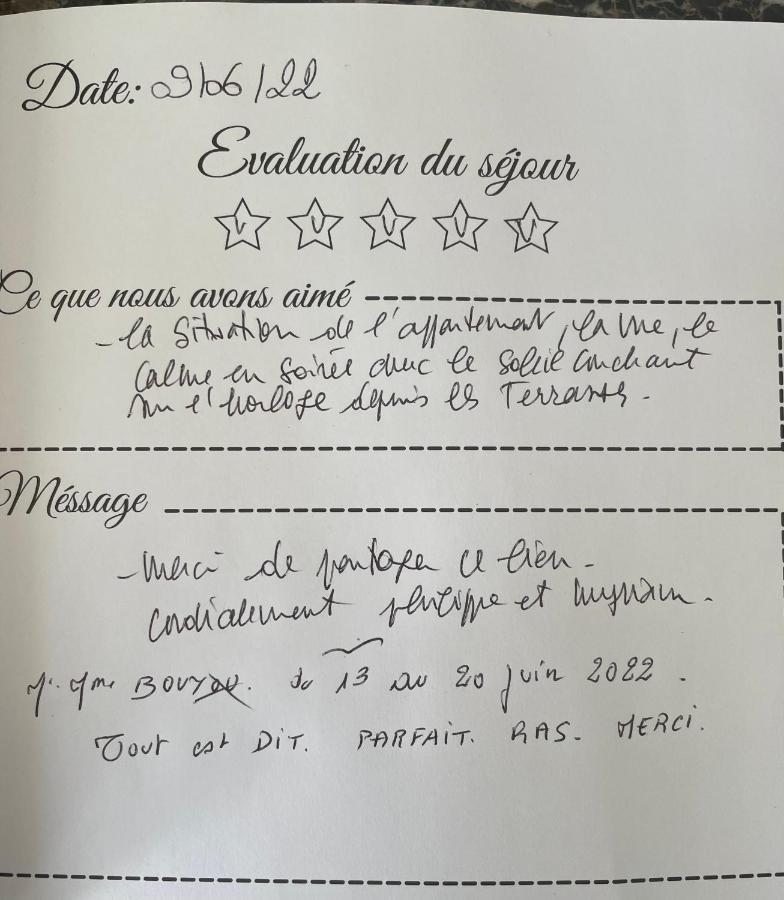 Date: 9/06/22
Evaluation du séjour
Ce que nous avons aimé
- la Situation de l'appartement, la vue, le
calme en soirée avec le soleil couchant
sur l'horloge depuis les Terrasses.
Méssage
- Merci de partager ce bien.
Cordialement philippe et
Mr. Mme du 13 au 20 juin 2022.
Tout est DIT. PARFAIT. RAS. MERCI.